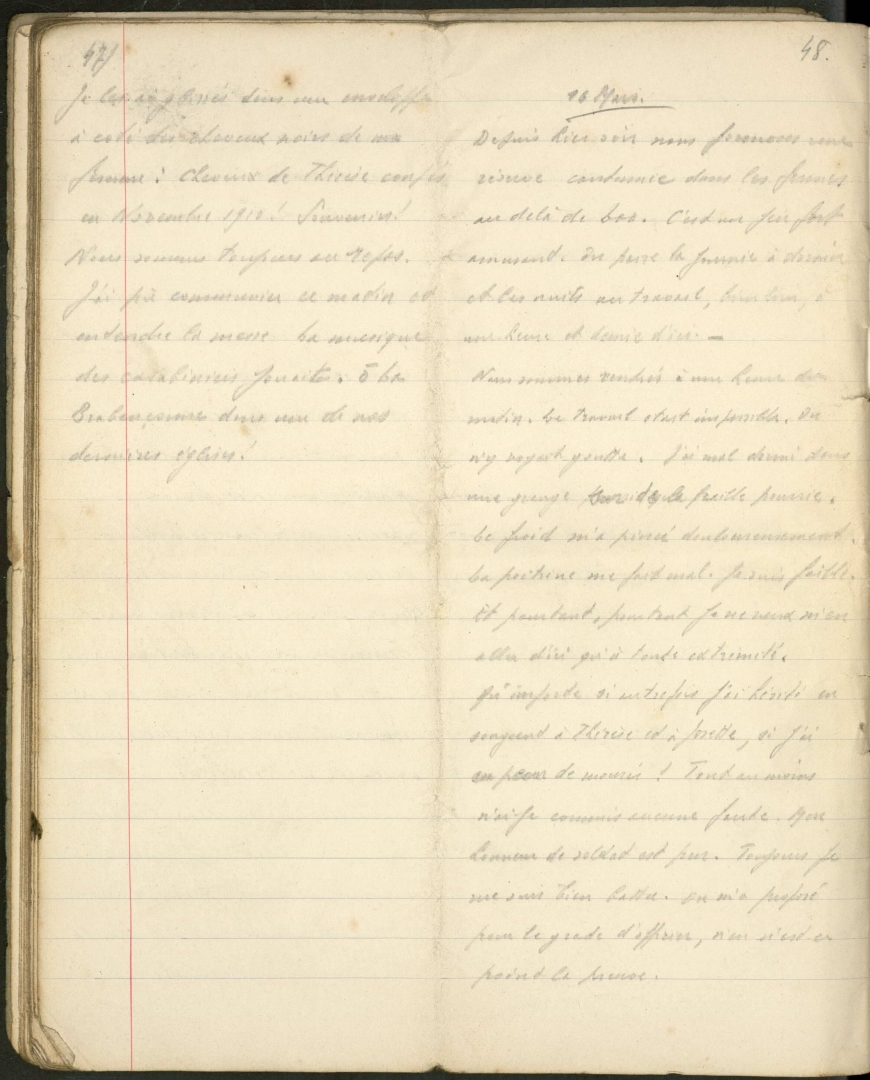 47)
Je les ai glissés dans une enveloppe
à coté des cheveux noirs de ma
femme : Cheveux de Thérèse coupés
en Novembre 1910 ! Souvenirs !
Nous sommes toujours au repos.
J'ai pu communier ce matin et
entendre la messe La musique
des carabiniers jouaits. ô La
Brabançonne dans une de nos
dernières églises !
48.
16 Mars.
Depuis hier soir nous formons une
réserve cantonnée dans les fermes
au delà de Loo. C'est un peu fort
amusant. On passe la journée à dormir
et les nuits au travail, bien loin, à
une heure et demie d'ici. —
Nous sommes rentrés à une heure du
matin. Le travail était impossible. On
n'y voyait goutte. J'ai mal dormi dans
une grange sur de la paille pourrie.
Le froid m'a pincé douloureusement.
La poitrine me fait mal. Je suis faible.
Et pourtant, pourtant je ne veux m'en
aller d'ici qu'à toute extrémité.
Qu'importe si autrefois j'ai hésité en
songeant à Thérèse et à Josette, si j'ai
eu peur de mourir ! Tout au moins
n'ai-je commis aucune faute. Mon
honneur de soldat est pur. Toujours je
me suis bien battu. On m'a proposé
pour le grade d'officier, n'en n'est ce
point la preuve.